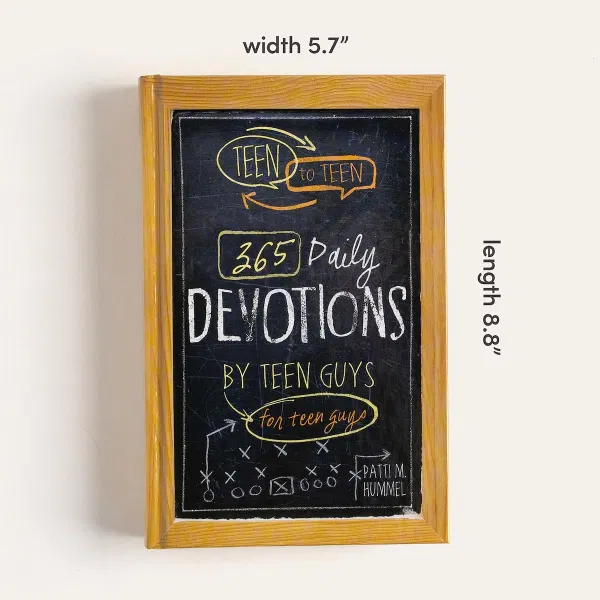 width 5.7”
TEEN
to TEEN
365 Daily
DEVOTIONS
BY TEEN GUYS
for teen guys
PATTI M.
HUMMEL
length 8.8”